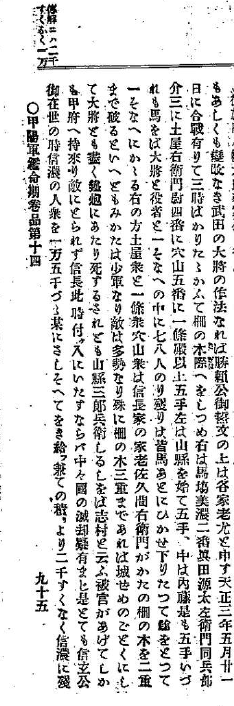 もあしくも變改なき武田の大將の作法なれば勝頼公御誓文の上は各家老尤と申す天正三年五月廿一
日に合戰有りて三時ばかりたゝかふて柵の木際へをしつめ右は馬塲美濃二番眞田源太左衛門同兵部
介三に土屋右衛門尉四番に穴山五番に一條殿以上五手左は山縣を始て五手、中は内藤是も五手いづ
れも馬をば大將と役者と一そなへの中に七八人のり殘りは皆馬あとにひかせ下りたつて鎗をとつて
一そなへにかゝる右の方土屋衆と一條衆穴山衆は信長家の家老佐久間右衛門がかたの柵の木を二重
まで破るといへどもみかたは少軍なり敵は多勢なり殊に柵の木三重まであれば城せめのごとくにし
て大將とも盡く鐵炮にあたり死するされども山縣三郎兵衛しるしをは志村と云ふ被官があげてしか
も甲府へ持來り敵にとられず信長此時付入にいたすならバ中々國の滅却變有まじ是とても信玄公
御在世の時信濃の人衆を一万五千づゝ某にさしそへてをき給フ兼ての積リより二千すくなく信濃に殘
ニハ二千
すくなく一万
○甲陽軍鑑命期卷品第十四
九十五